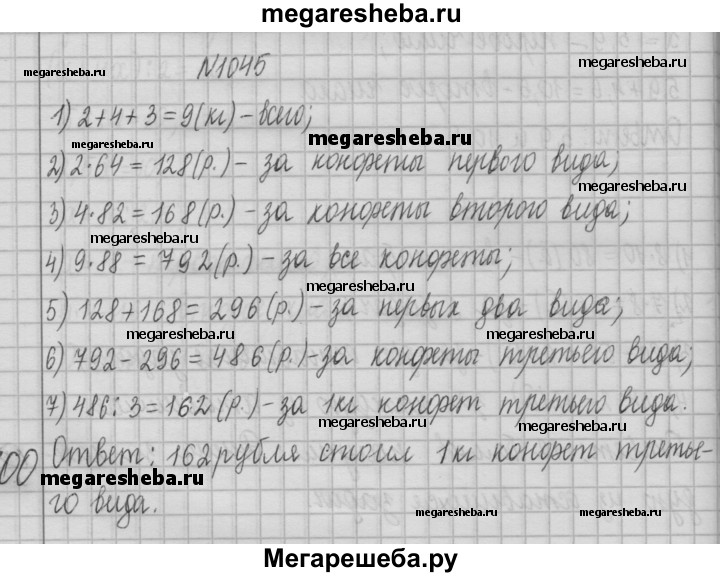 megaresheba.ru
N1045
megaresheba.ru
megaresheba.ru
1) 2+4+3=9(кг)-всего;
megaresheba.ru
2) 2·64=128(р.)- за конфеты первого вида;
megaresheba.ru
3) 4·82=168(р.)-за конфеты второго вида;
megaresheba.ru
4) 9·88=792(р.)-за все конфеты;
megaresheba.ru
5) 128+168=296(р.)-за первых два вида;
megaresheba.ru
megaresheba.ru
6) 792-296=486(р.)-за конфеты третьего вида;
7) 486:3=162(р.)-за 1кг конфет третьего вида.
megaresheba.ru
Ответ: 162рубля стоил 1кг конфет треть-
megaresheba.ru
его вида.
megaresheba.ru
megaresheba.ru
Мегарешеба.ру